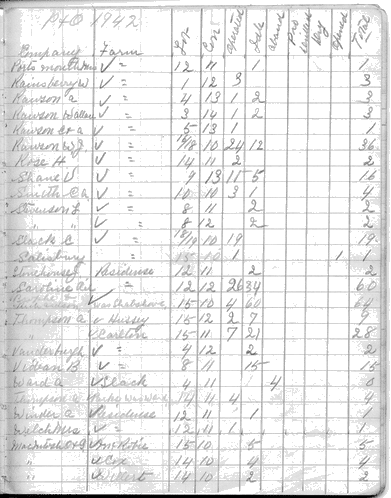 P&O 1942
Company Farm Lot Con Operated Idle Aband Pro Dry Opened Total
12 11 1 1
Rainsberry W ✓ = 1 12 3 3
Rawson A ✓ = 4 13 1 2 3
Rawson ✓ = 3 14 1 2 3
Rawson C & A ✓ = 5 13 1 1
Rawson W J ✓ = 10 24 12 36
Rose H ✓ = 14 11 2 2
Shane ✓ = 9 13 11 5 16
Smith C A ✓ = 10 10 3 1 4
Stevenson L ✓ = 8 11 2 2
" " ✓ = 8 12 2 2
Slack C ✓ = 18/19 10 19 19
Salisbury ✓ = 10 1 1
Residense 12 11 2 2
12 12 26 34 60
15 10 4 60 64
Thompson A ✓ Hussey 15 12 2 7 9
" ✓ Carlton 15 11 7 21 28
Vanderburgh ✓ = 4 12 2 2
B ✓ = 8 11 15 15
Ward A ✓ Slack 4 11 4 0
Thompson A 14 11 4 4
Winder A ✓ Residense 12 11 1 1
Welch Mrs ✓ = 12 11 1 1
✓ McRobie 15 10 5 5
" ✓ Cox 14 10 4 4
" ✓ 14 10 2 2